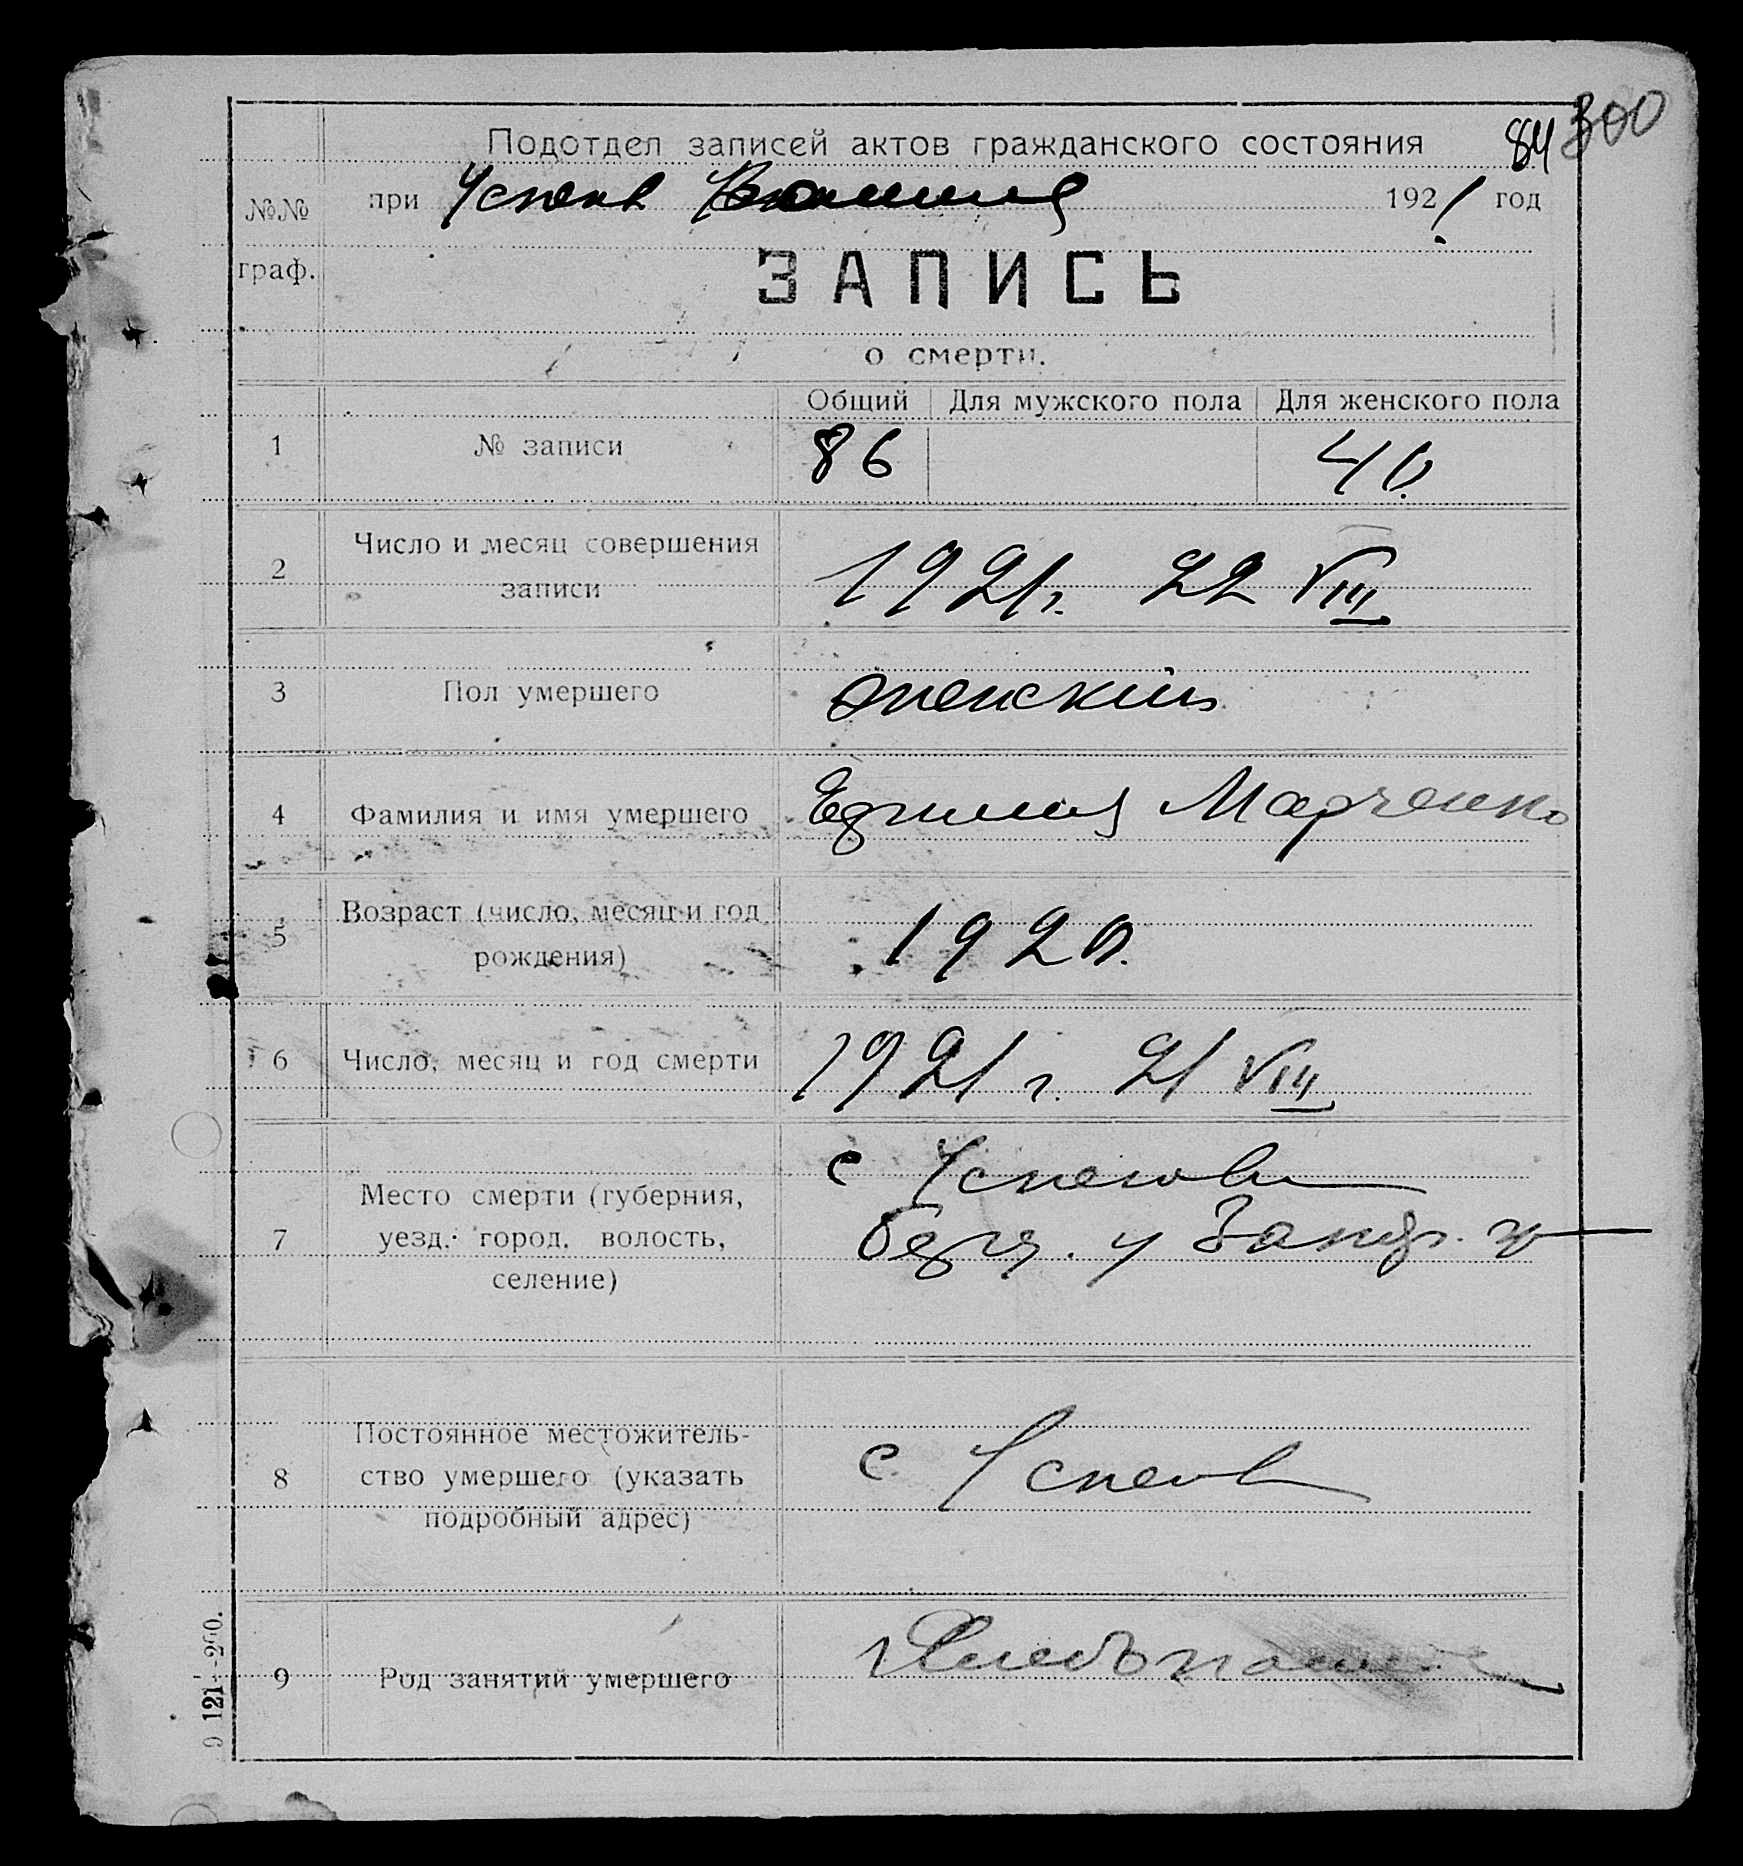 300
84
Подотдел записей актов гражданского состояния
при Успенв 1921 год
№№ граф.
ЗАПИСЬ
о смерти.
Общий Для мужского пола Для женского пола
1 № записи 86 40.
2 Число и месяц совершения
записи 1921г. 22 VIII
3 Пол умершего женский
4 Фамилия и имя умершего Марченко
5 Возраст (число, месяц и год
рождения) 1920.
6 Число, месяц и год смерти 1921 г. 21 VIII
7 Место смерти (губерния,
с Успенов
уезд. город, волость,
Бердя. у Запор. г
селение)
8 Постоянное местожитель-
ство умершего (указать
с. Успенов
подробный адрес)
9 Род занятий умершего